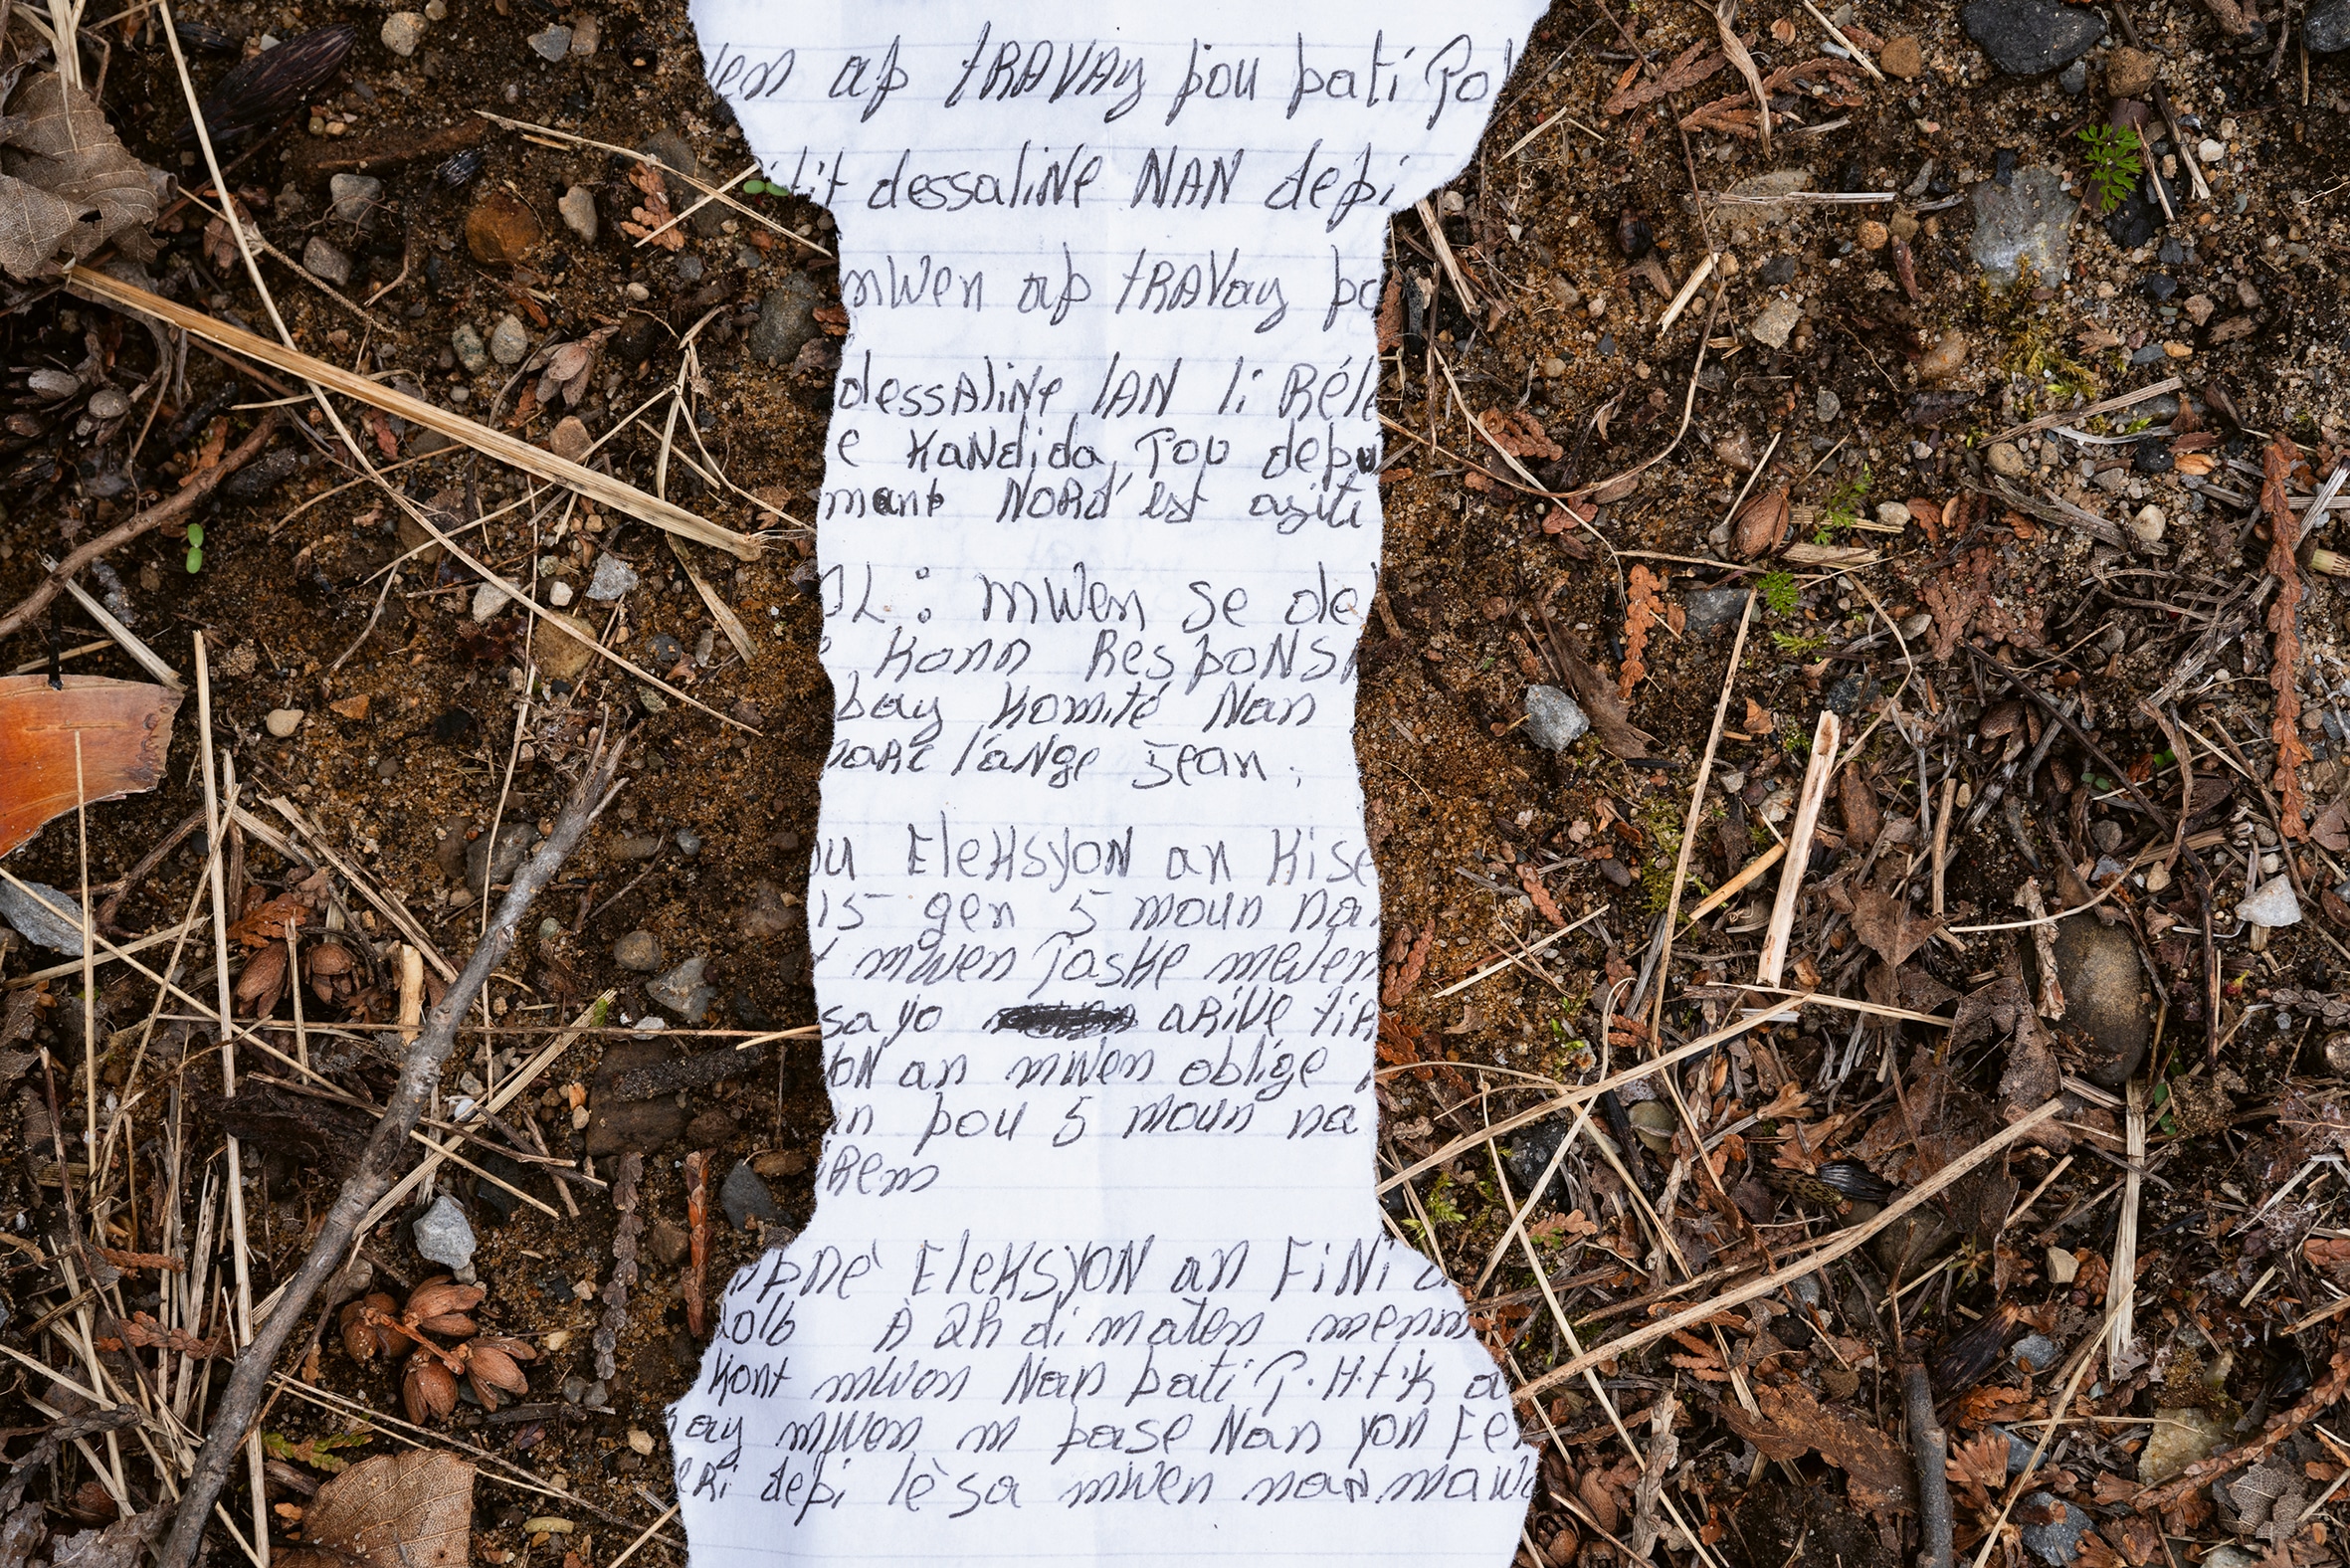 ap tRAVAy pou pati
dessaliNe NAN depi
mwen ap tRAVay
dessAliNe lAN li Rele
e KaNdida pou depu
mant NORd'est asiti
OL : mwen se de
Konn ResPoNS
bay Komité Nan
marc l'aNge Jean.
ou EleKsyoN an Kise
15 gen 5 moun na
mwen paske mwen
sa yo aRiVe tiR
oN an mwen oblige
an pou 5 moun na
iRem
apRè EleKsyoN an FiNi a
2016 À 2h di maten menm
Kont mwen Nan pati P.H.t.K a
ay mwen m pase Nan yon Fe
eRi depi lè sa mwen nan mawo